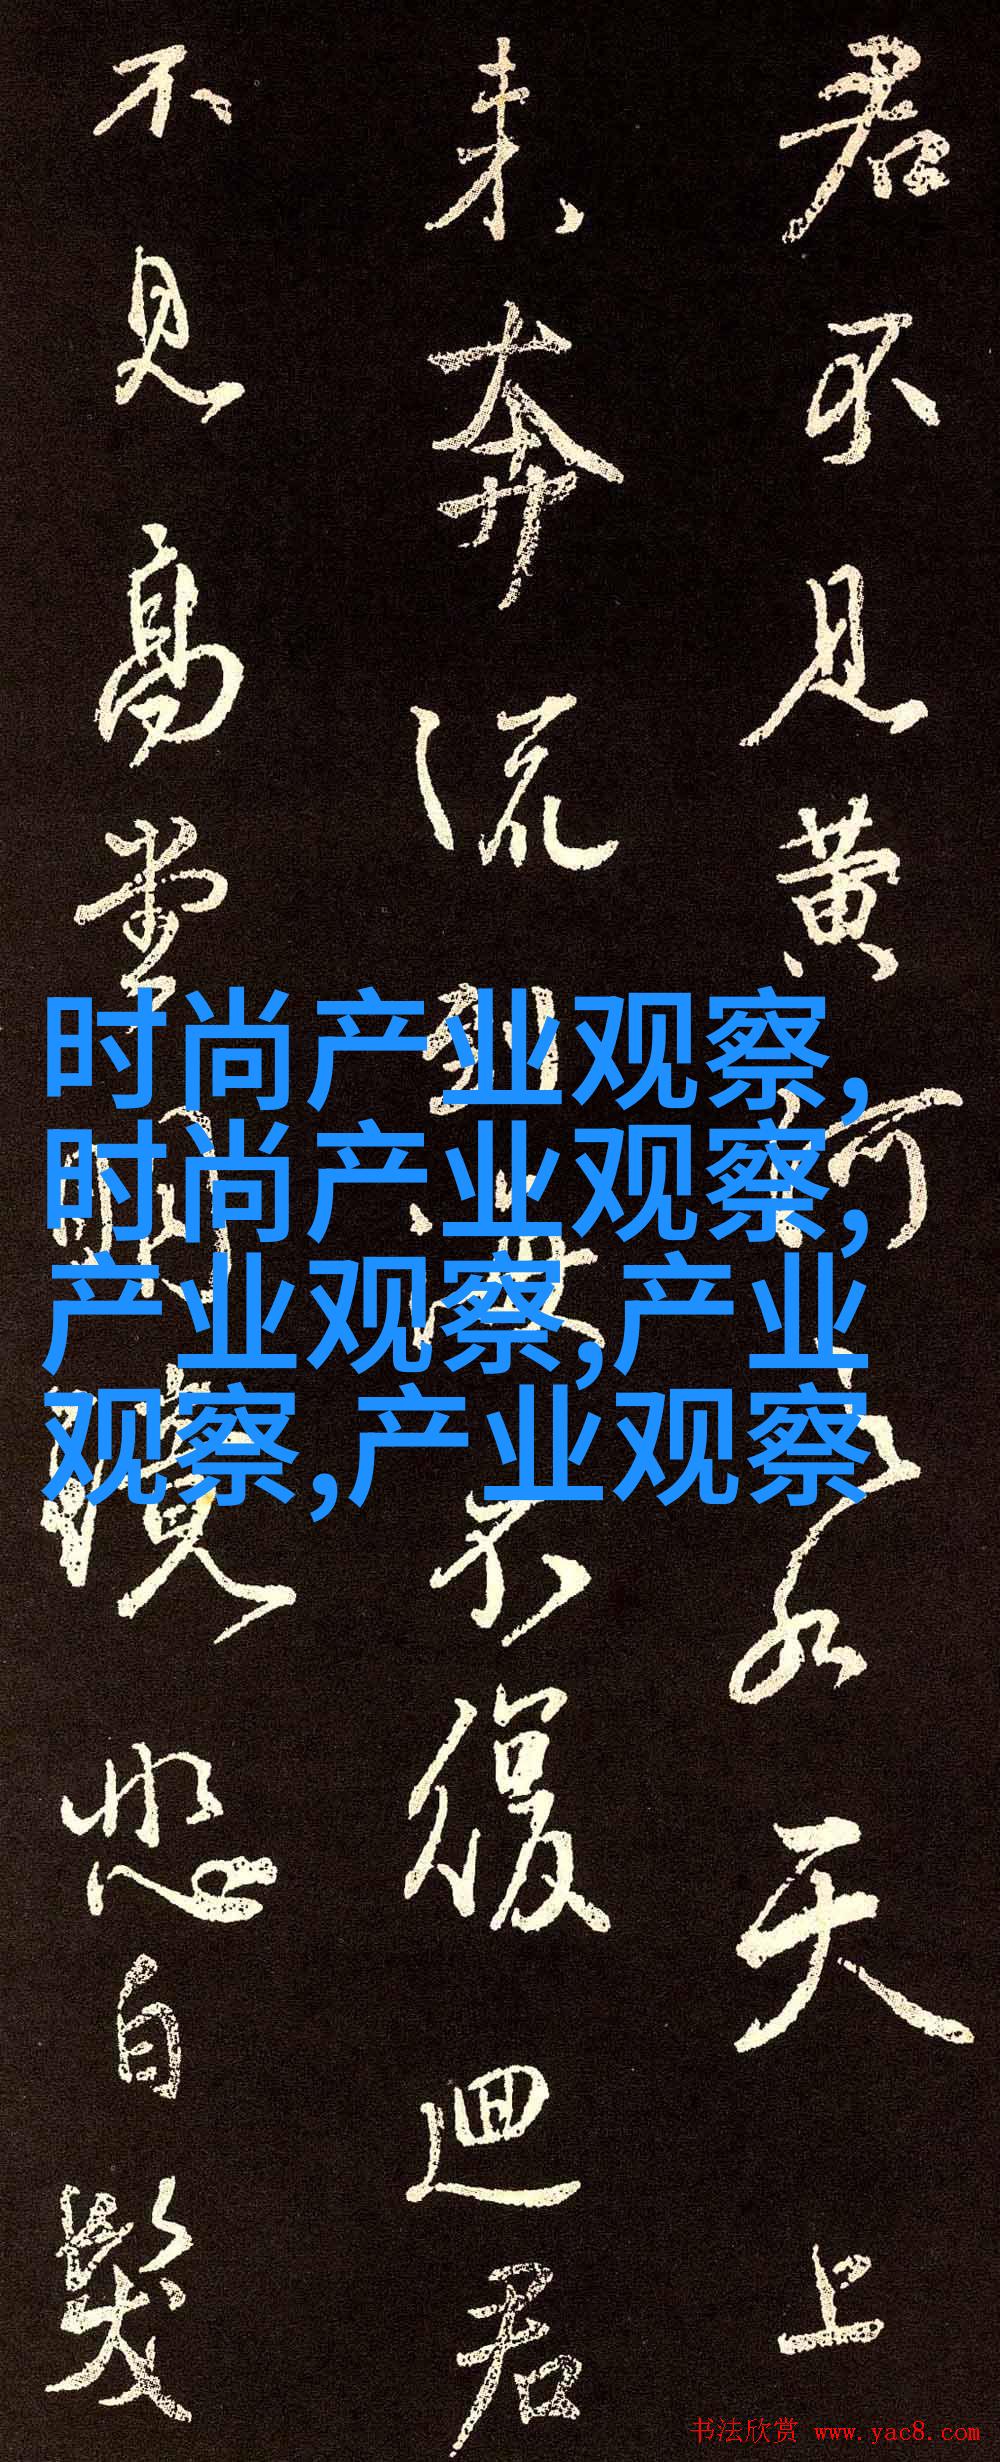 君不见黄河之水天上
来奔流到海不復迴君
不見高堂明鏡悲白髮
时尚产业观察,
时尚产业观察,
产业观察,产业
观察,产业观察
书法欣赏 www.yac8.com